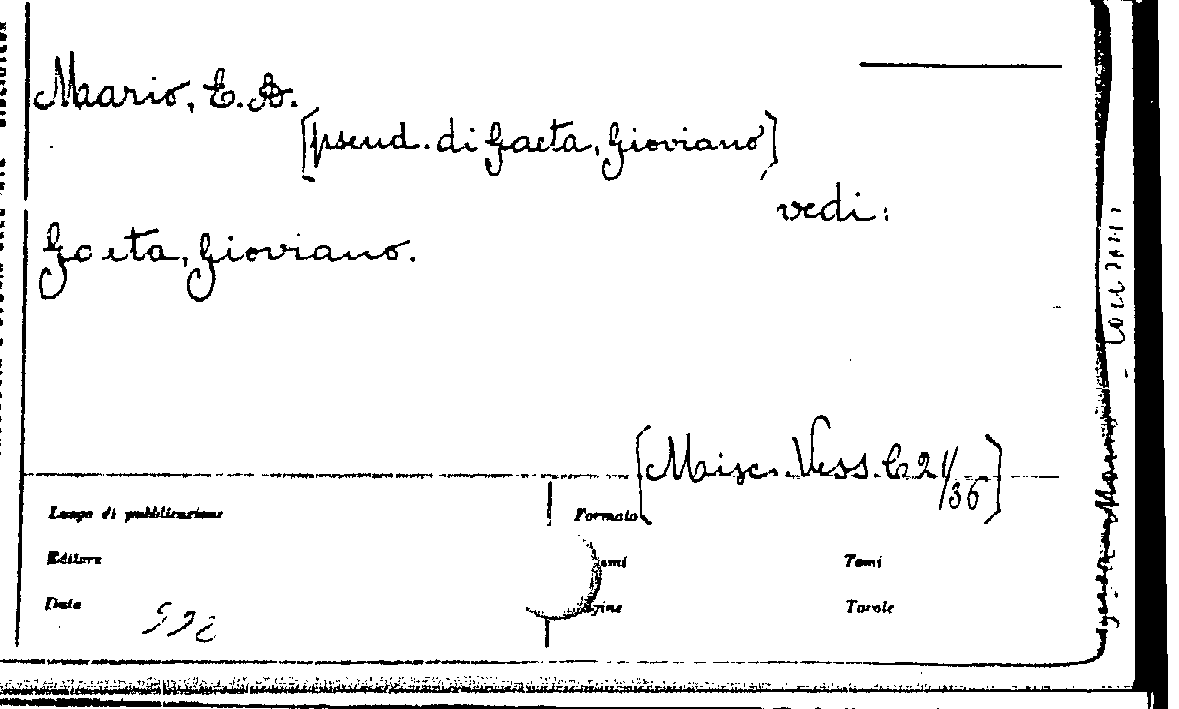 Mario, E. A.
[pseud. di Gaeta, Gioviano]
vedi:
Gaeta, Gioviano.
[Misc. Vess. C 21/36]
Luogo di pubblicazione
Formato
Editore
Tomi
Data
Tavole